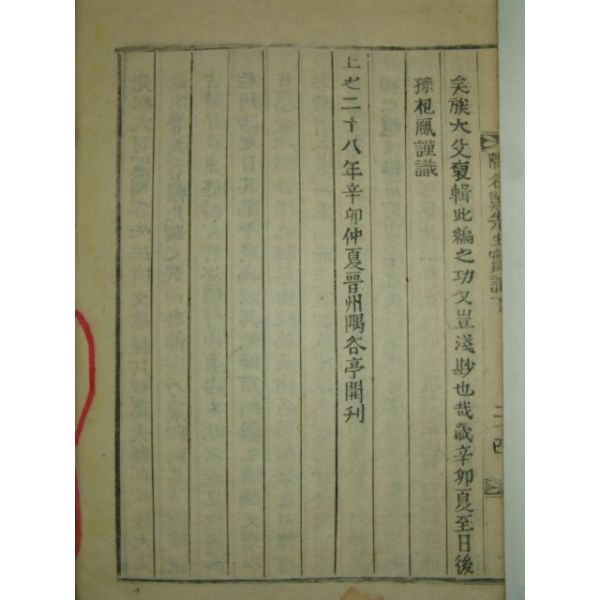 矣族大父裒輯此編之功又豈淺尠也哉歲辛卯夏至日後
孫相鳳謹識
上之二十八年辛卯仲夏晉州隅谷亭開刊
隅谷鄭先生實記下